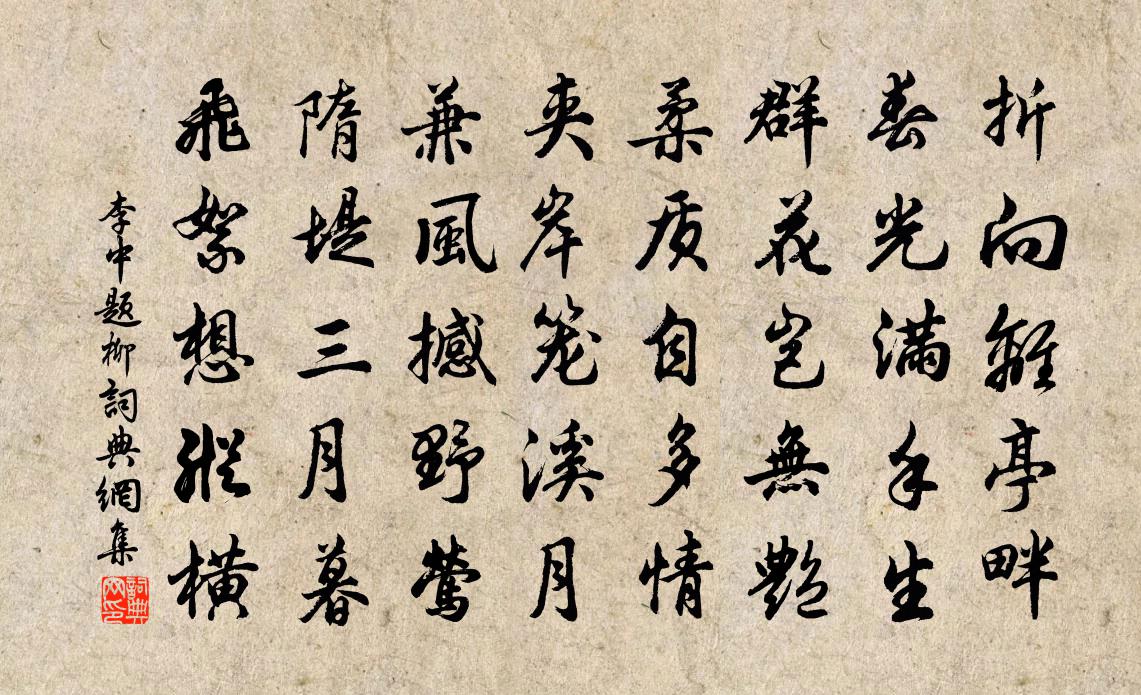 折向離亭畔
春光滿手生
群花豈無艷
柔质自多情
夾岸笼溪月
兼風撼野鶯
隋堤三月暮
飛絮想縱橫
李中题柳詞典網集
詞典网印